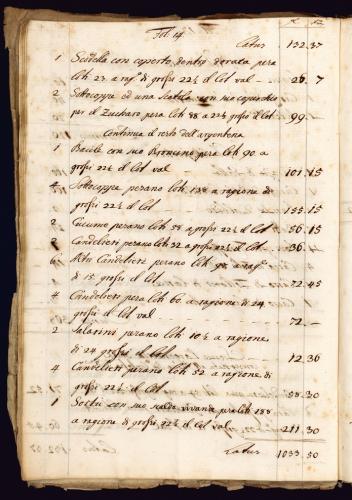 Fol. 14.
Latus 132.37
1 Scudela con coperto dentro dorata pesa
loth 23 a rag.e di grossi 22½ el lot val — 26. 7
2 Sottocoppe ed una Scatola con suo coperchio
per il Zuccharo pesa loth 88 a 22½ grossi el lot 99.
Continua il resto dell argenteria
1 Bacile con suo Broncino pesa loth 90 a
grossi 22½ el lot val 101.15
4 Sottocoppe pesano loth 138 a ragione di
grossi 22½ el lot 155.15
2 Cucume pesano loth a grossi 22½ el lot 56.15
8 Candelieri pesano loth 32 a grossi 22½ el lot 36.
6 Altri Candelieri pesano loth a rag.e
di 15 grossi el lot 72.45
4 Candelieri pesa loth 60. a ragione di 24
grossi el lot val 72. —
2 Salarini pesano loth 10½ a ragione
di 24 grossi el lot 12.36
4 Candelieri pesano loth 52 a ragione di
grossi 22½ el lot 58.30
1 con suo scalda vivanda pesa loth 188
a ragione di grossi 22½ el lot val 211.30
Latus 1033.50